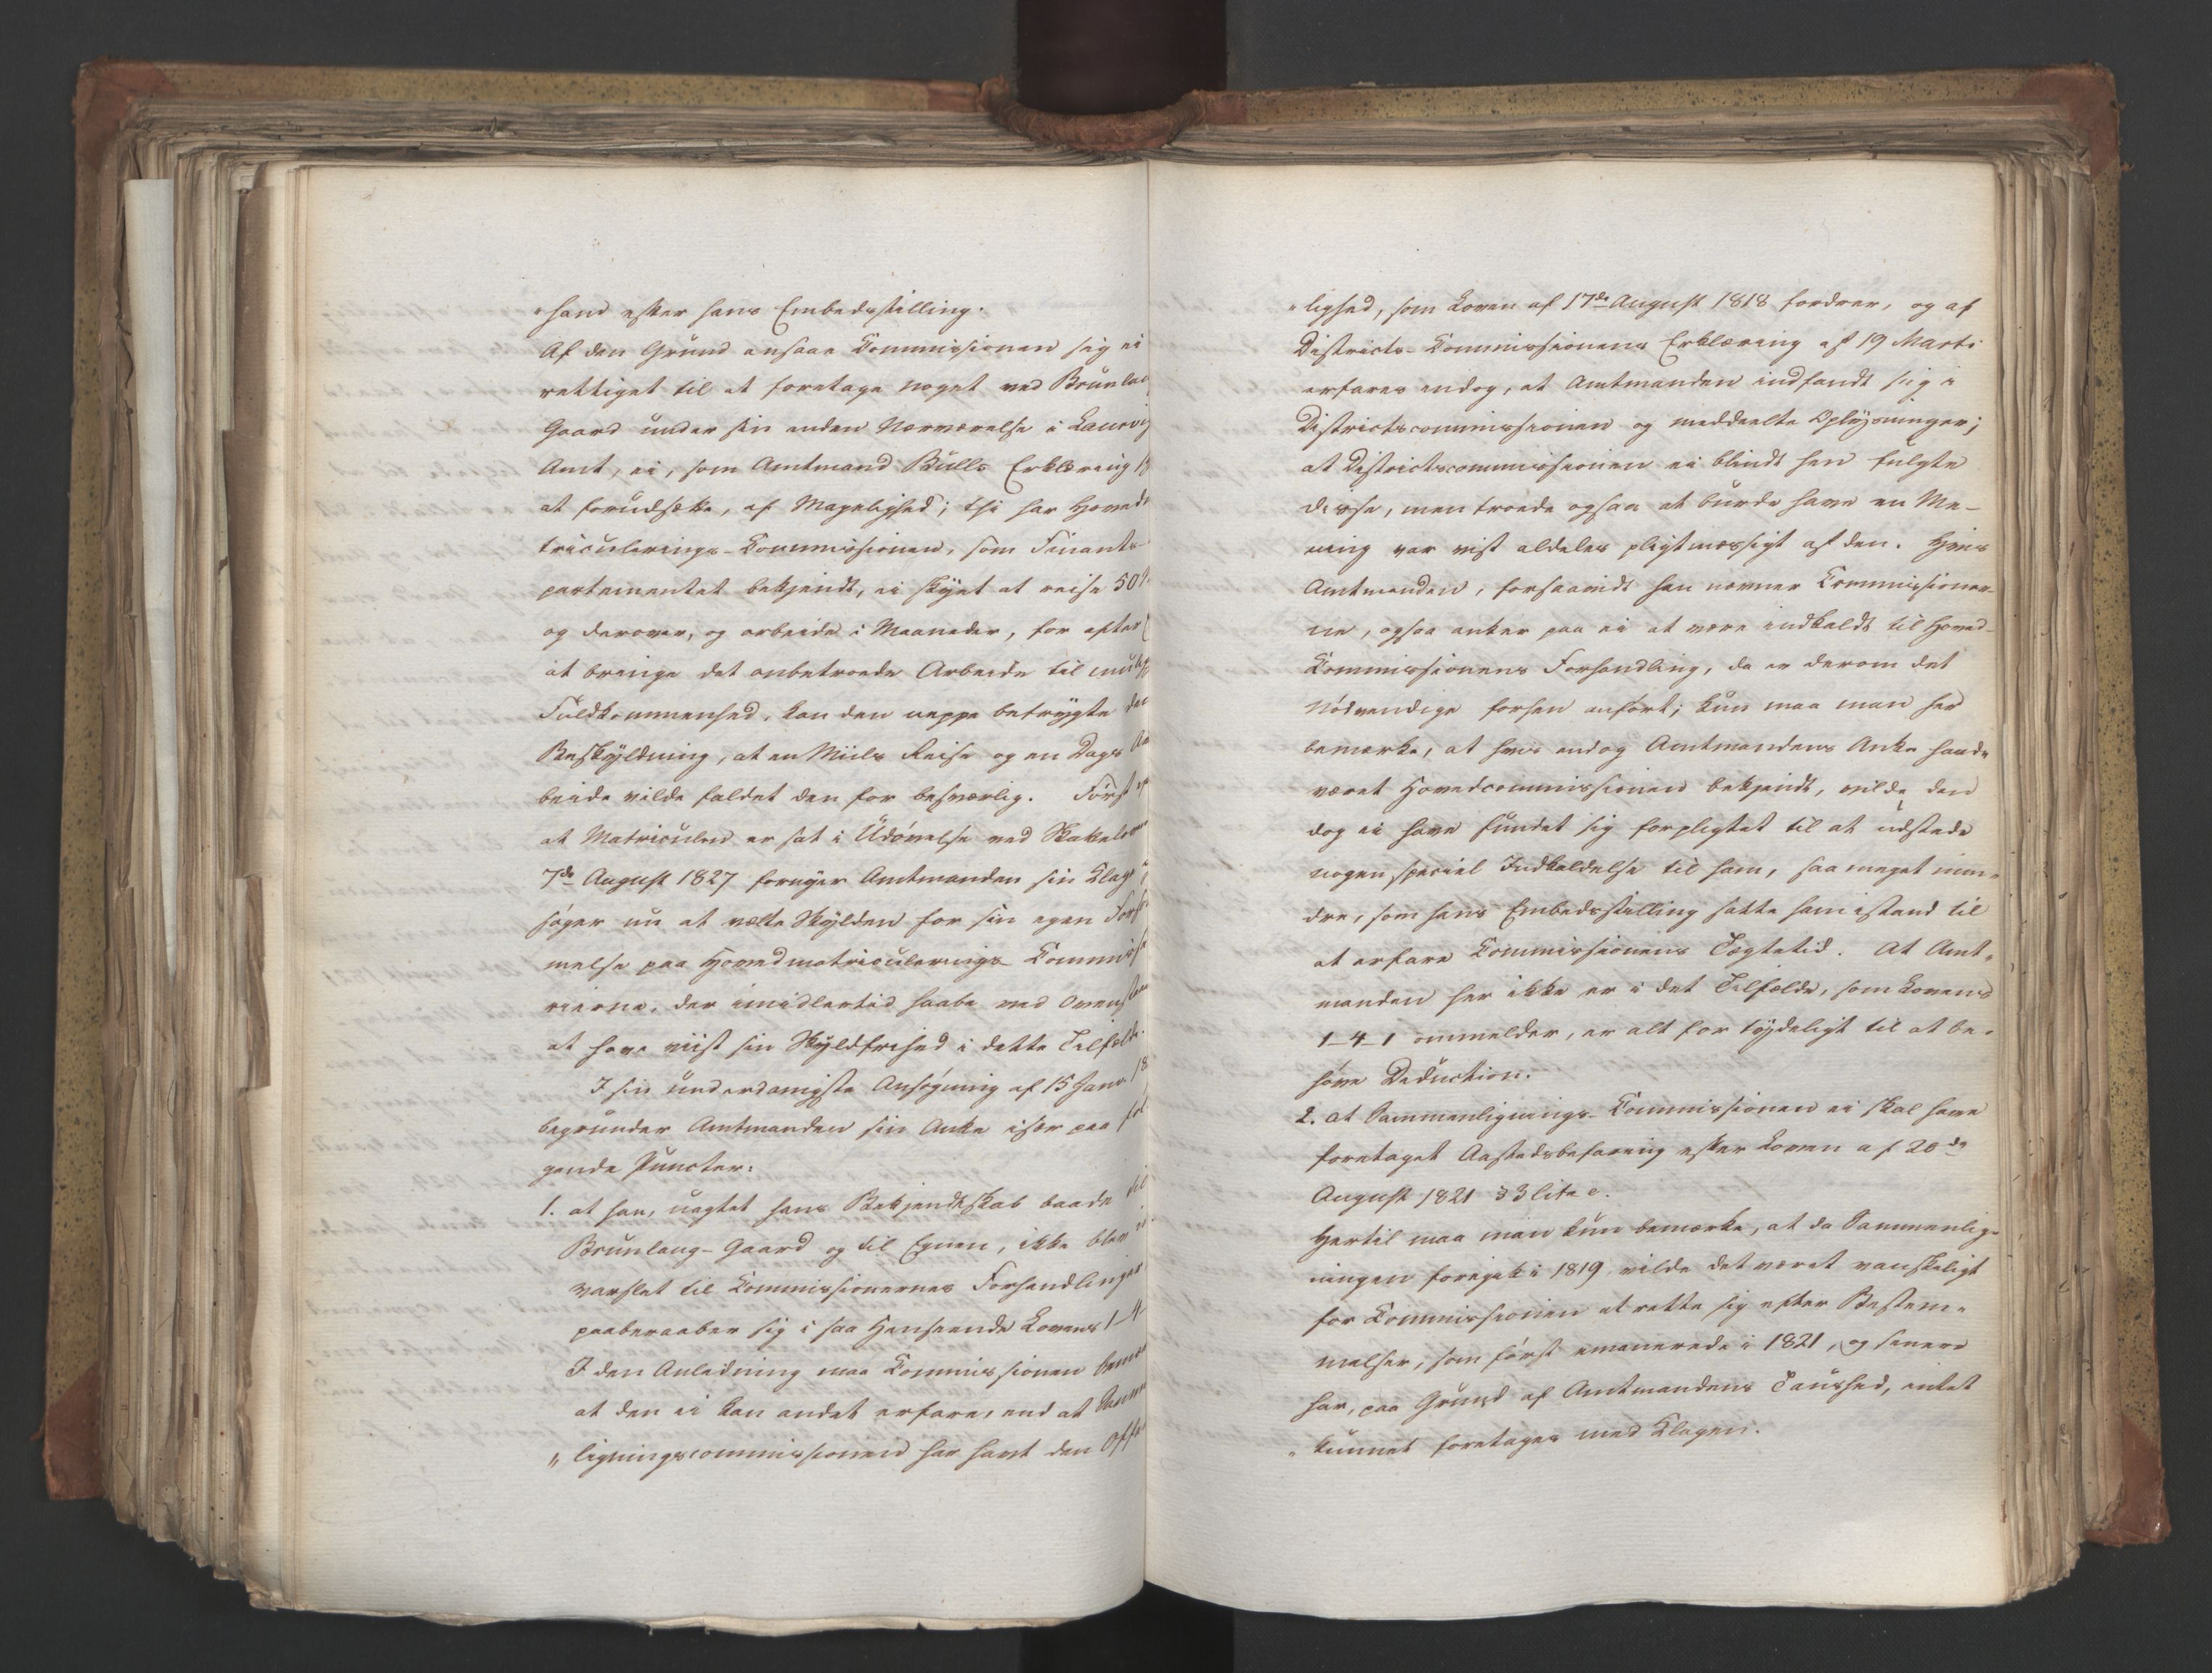 "hans efter hans Embedsstilling.
Af den Grund ansaae Commissionen sig ei
rettiget til at foretage noget ved Brunla
Gaard under sin anden Nærværelse i Laurvig
Amt, ei, som Amtmand Bulls Erklæring
at forudsætte, af Magelighed; thi har Hoved
triculerings-Commissionen, som Finants-
partementet bekjendt, ei skyet at reise 50
og derover, og arbeide i Maaneder, for efter
at bringe det anbetroede Arbeide til
Fuldkommenhed, kan den neppe befrygte den
Beskyldning, at en Miils Reise og en Dags
beide vilde faldet den for besværlig. Først
at Matriculen er sat i Udøvelse ved Skatelov
7de August 1827 fornyer Amtmanden sin Klage
søger nu at vælte Skylden for sin egen
melse paa Hovedmatriculerings-Commiss
rierne, der imidlertid haabe ved Ovenstaa
at have viist sin Skyldfrihed i dette Tilfælde.
I sin underdanigste Ansøgning af 15 Janr 18
begrunder Amtmanden sin Anke især paa føl
gende Puncter:
1. at han, uagtet hans Bekjendtskab baade til
Brunlaug-Gaard og til Egnen, ikke blev
varslet til Commissionernes Forhandlinger
paaberaaber sig i saa Henseende Lovens 1-4
I den Anledning maa Commissionen bemær
at den ei kan andet erfare, end at Samm
"ligningscommissionen har havt den Offe
"lighed, som Loven af 17de August 1818 fordrer, og af
Districts-Commissionens Erklæring af 19 Marts
erfares endog, at Amtmanden indfandt sig i
Districtscommissionen og meddeelte Oplysninger;
at Districtscommissionen ei blindt hen fulgte
disse, men troede ogsaa at burde have en Me-
ning var vist aldeles pligtmæssigt af den. Hvis
Amtmanden, forsaavidt han nævner Commissioner-
ne, ogsaa anker paa ei at være indkaldt til Hoved-
Commissionens Forhandling, da er derom det
Nødvendige forhen anført; kun maa man her
bemærke, at hvis endog Amtmandens Anke havde
været Hovedcommissionen bekjendt, vilde den
dog ei have fundet sig forpligtet til at udstede
nogen special Indkaldelse til ham, saa meget min-
dre, som hans Embedsstilling satte ham istand til
at erfare Commissionens Tægtetid. At Amt-
manden her ikke er i det Tilfælde, som Lovens
1-4-1 ommelder, er alt for tydeligt til at be-
høve Deduction.
2. at Sammenlignings-Commissionen ei skal have
foretaget Aastedsbefaring efter Loven af 20de
August 1821 § 3 litr c.
Hertil maa man kun bemærke, at da Sammenlig-
ningen foregik i 1819 vilde det været vanskeligt
for Commissionen at rette sig efter Bestem-
melser, som først emanerede i 1821, og senere
har, paa Grund af Amtmandens Taushed, intet
"kunnet foretages med Klagen.